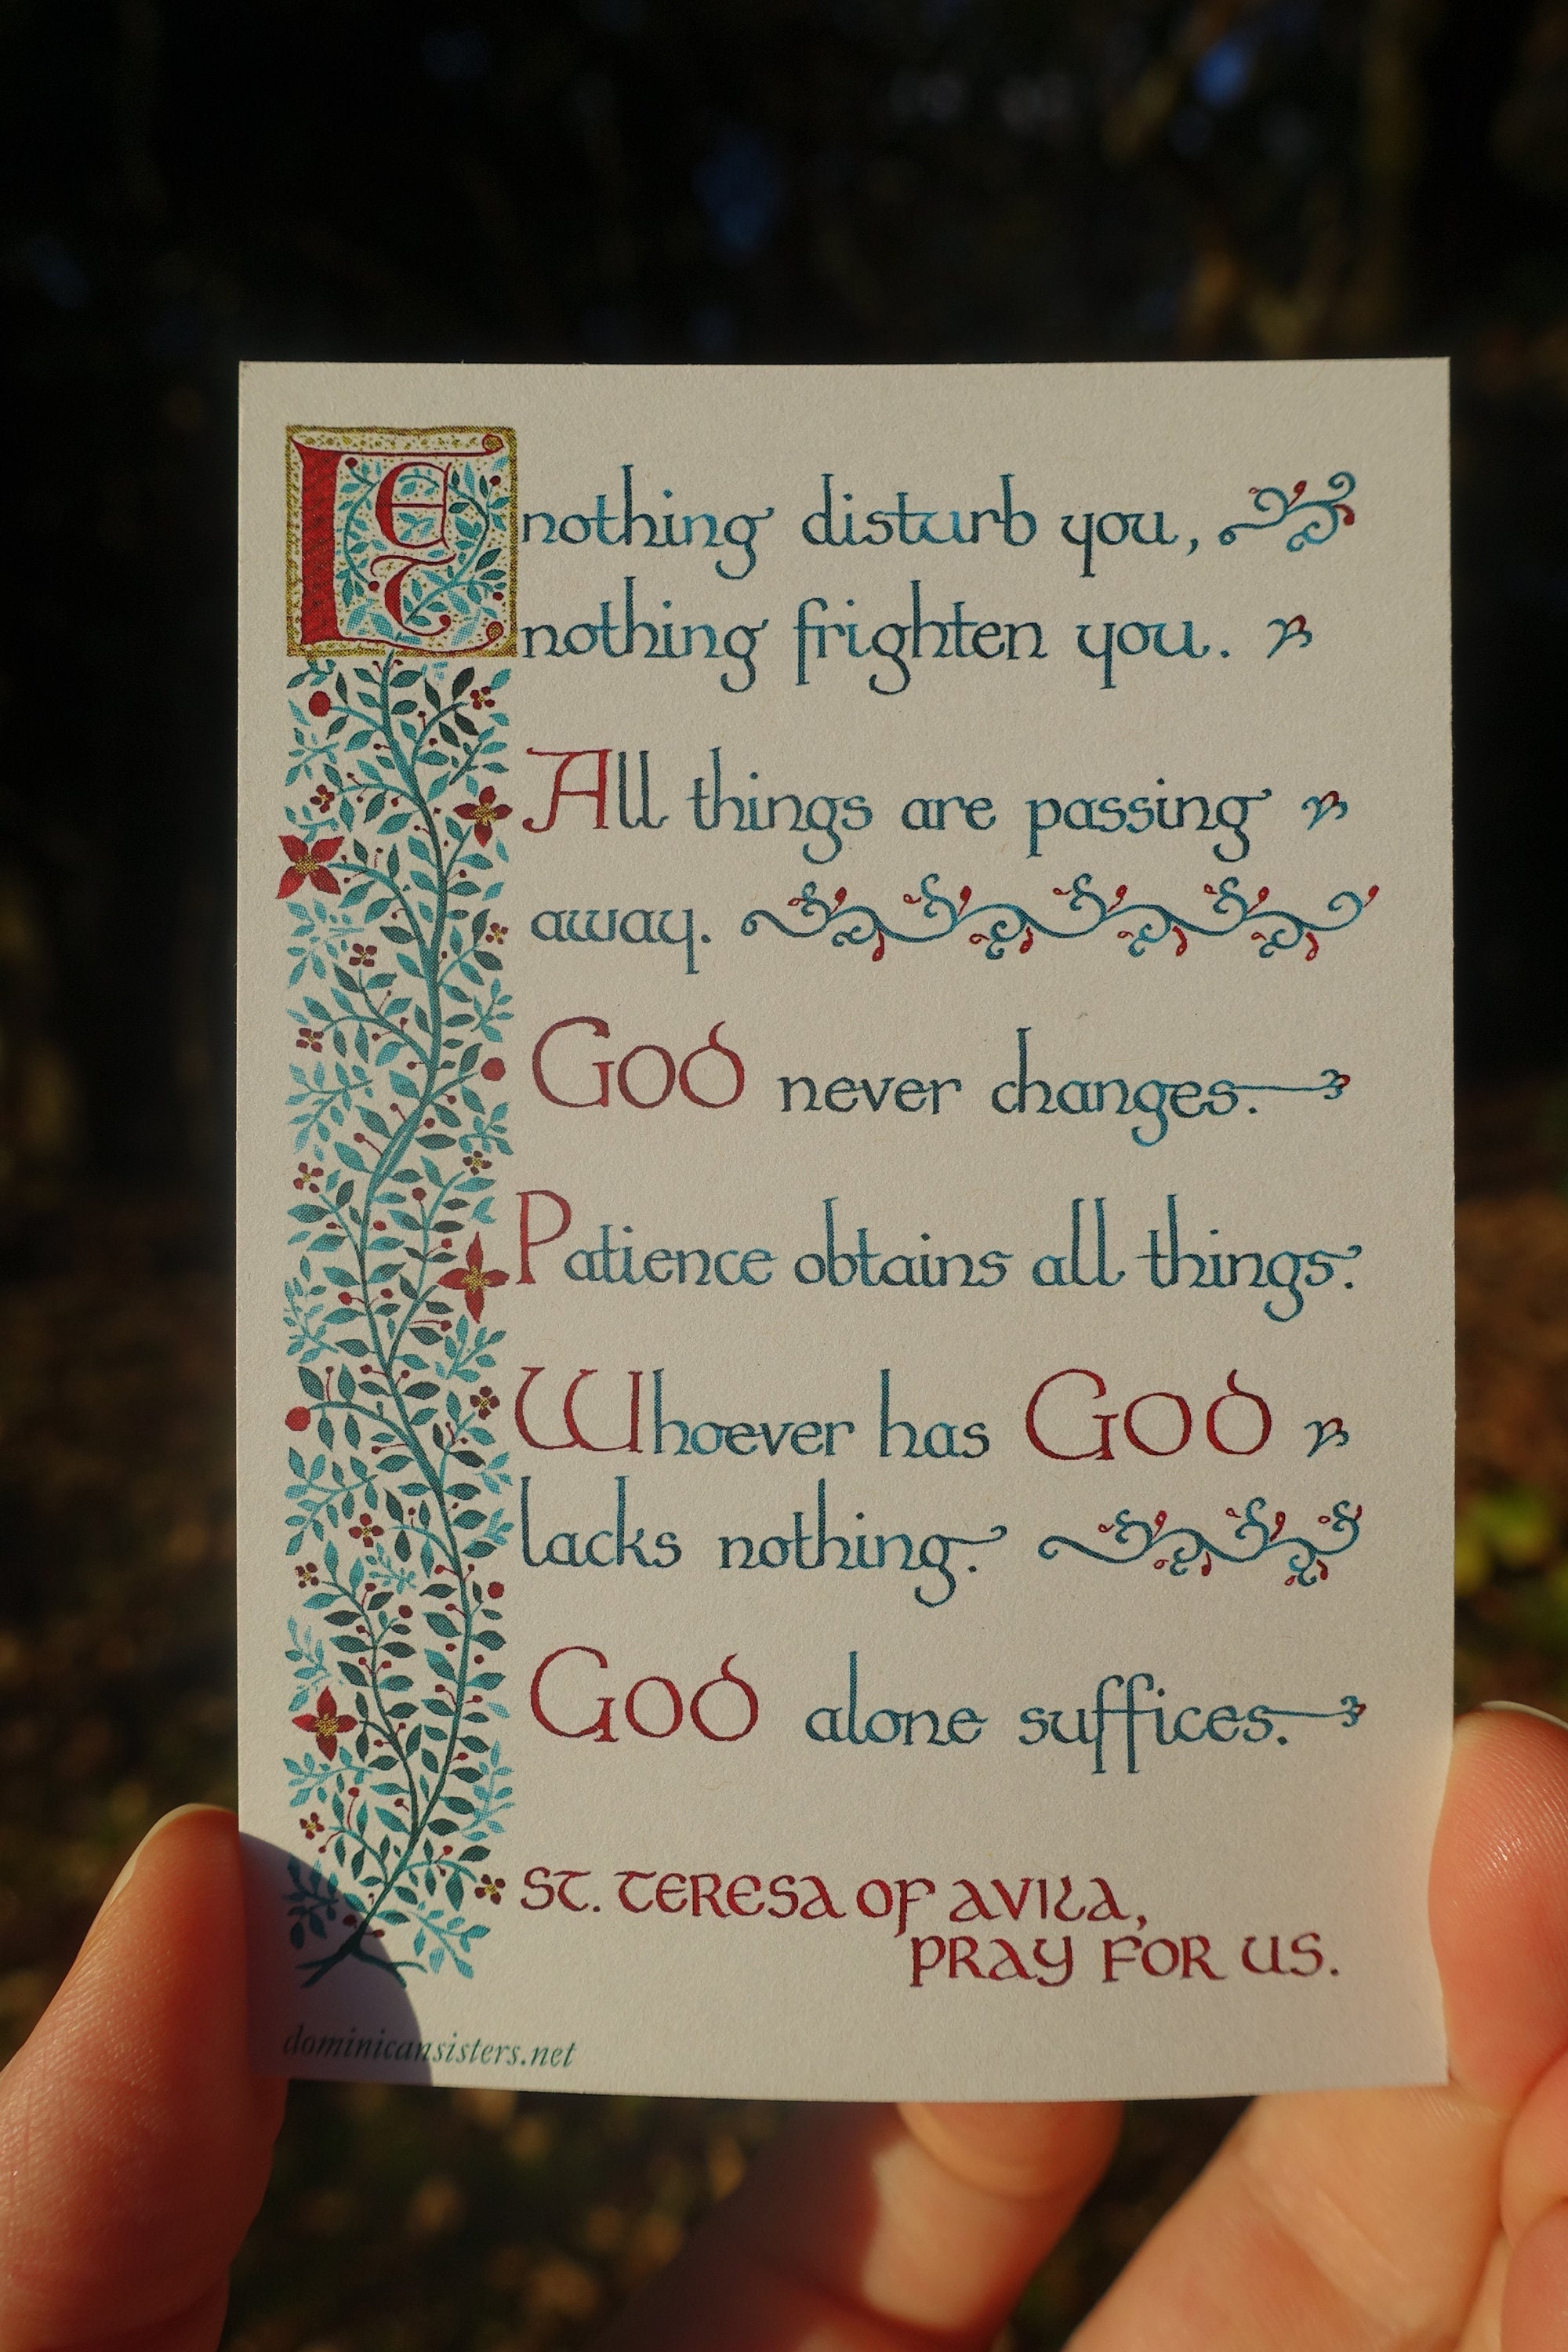 Let nothing disturb you,
nothing frighten you.
All things are passing
away.
GOD never changes.
Patience obtains all things.
Whoever has GOD
lacks nothing.
GOD alone suffices.
ST. TERESA OF AVILA,
PRAY FOR US.
dominicansisters.net